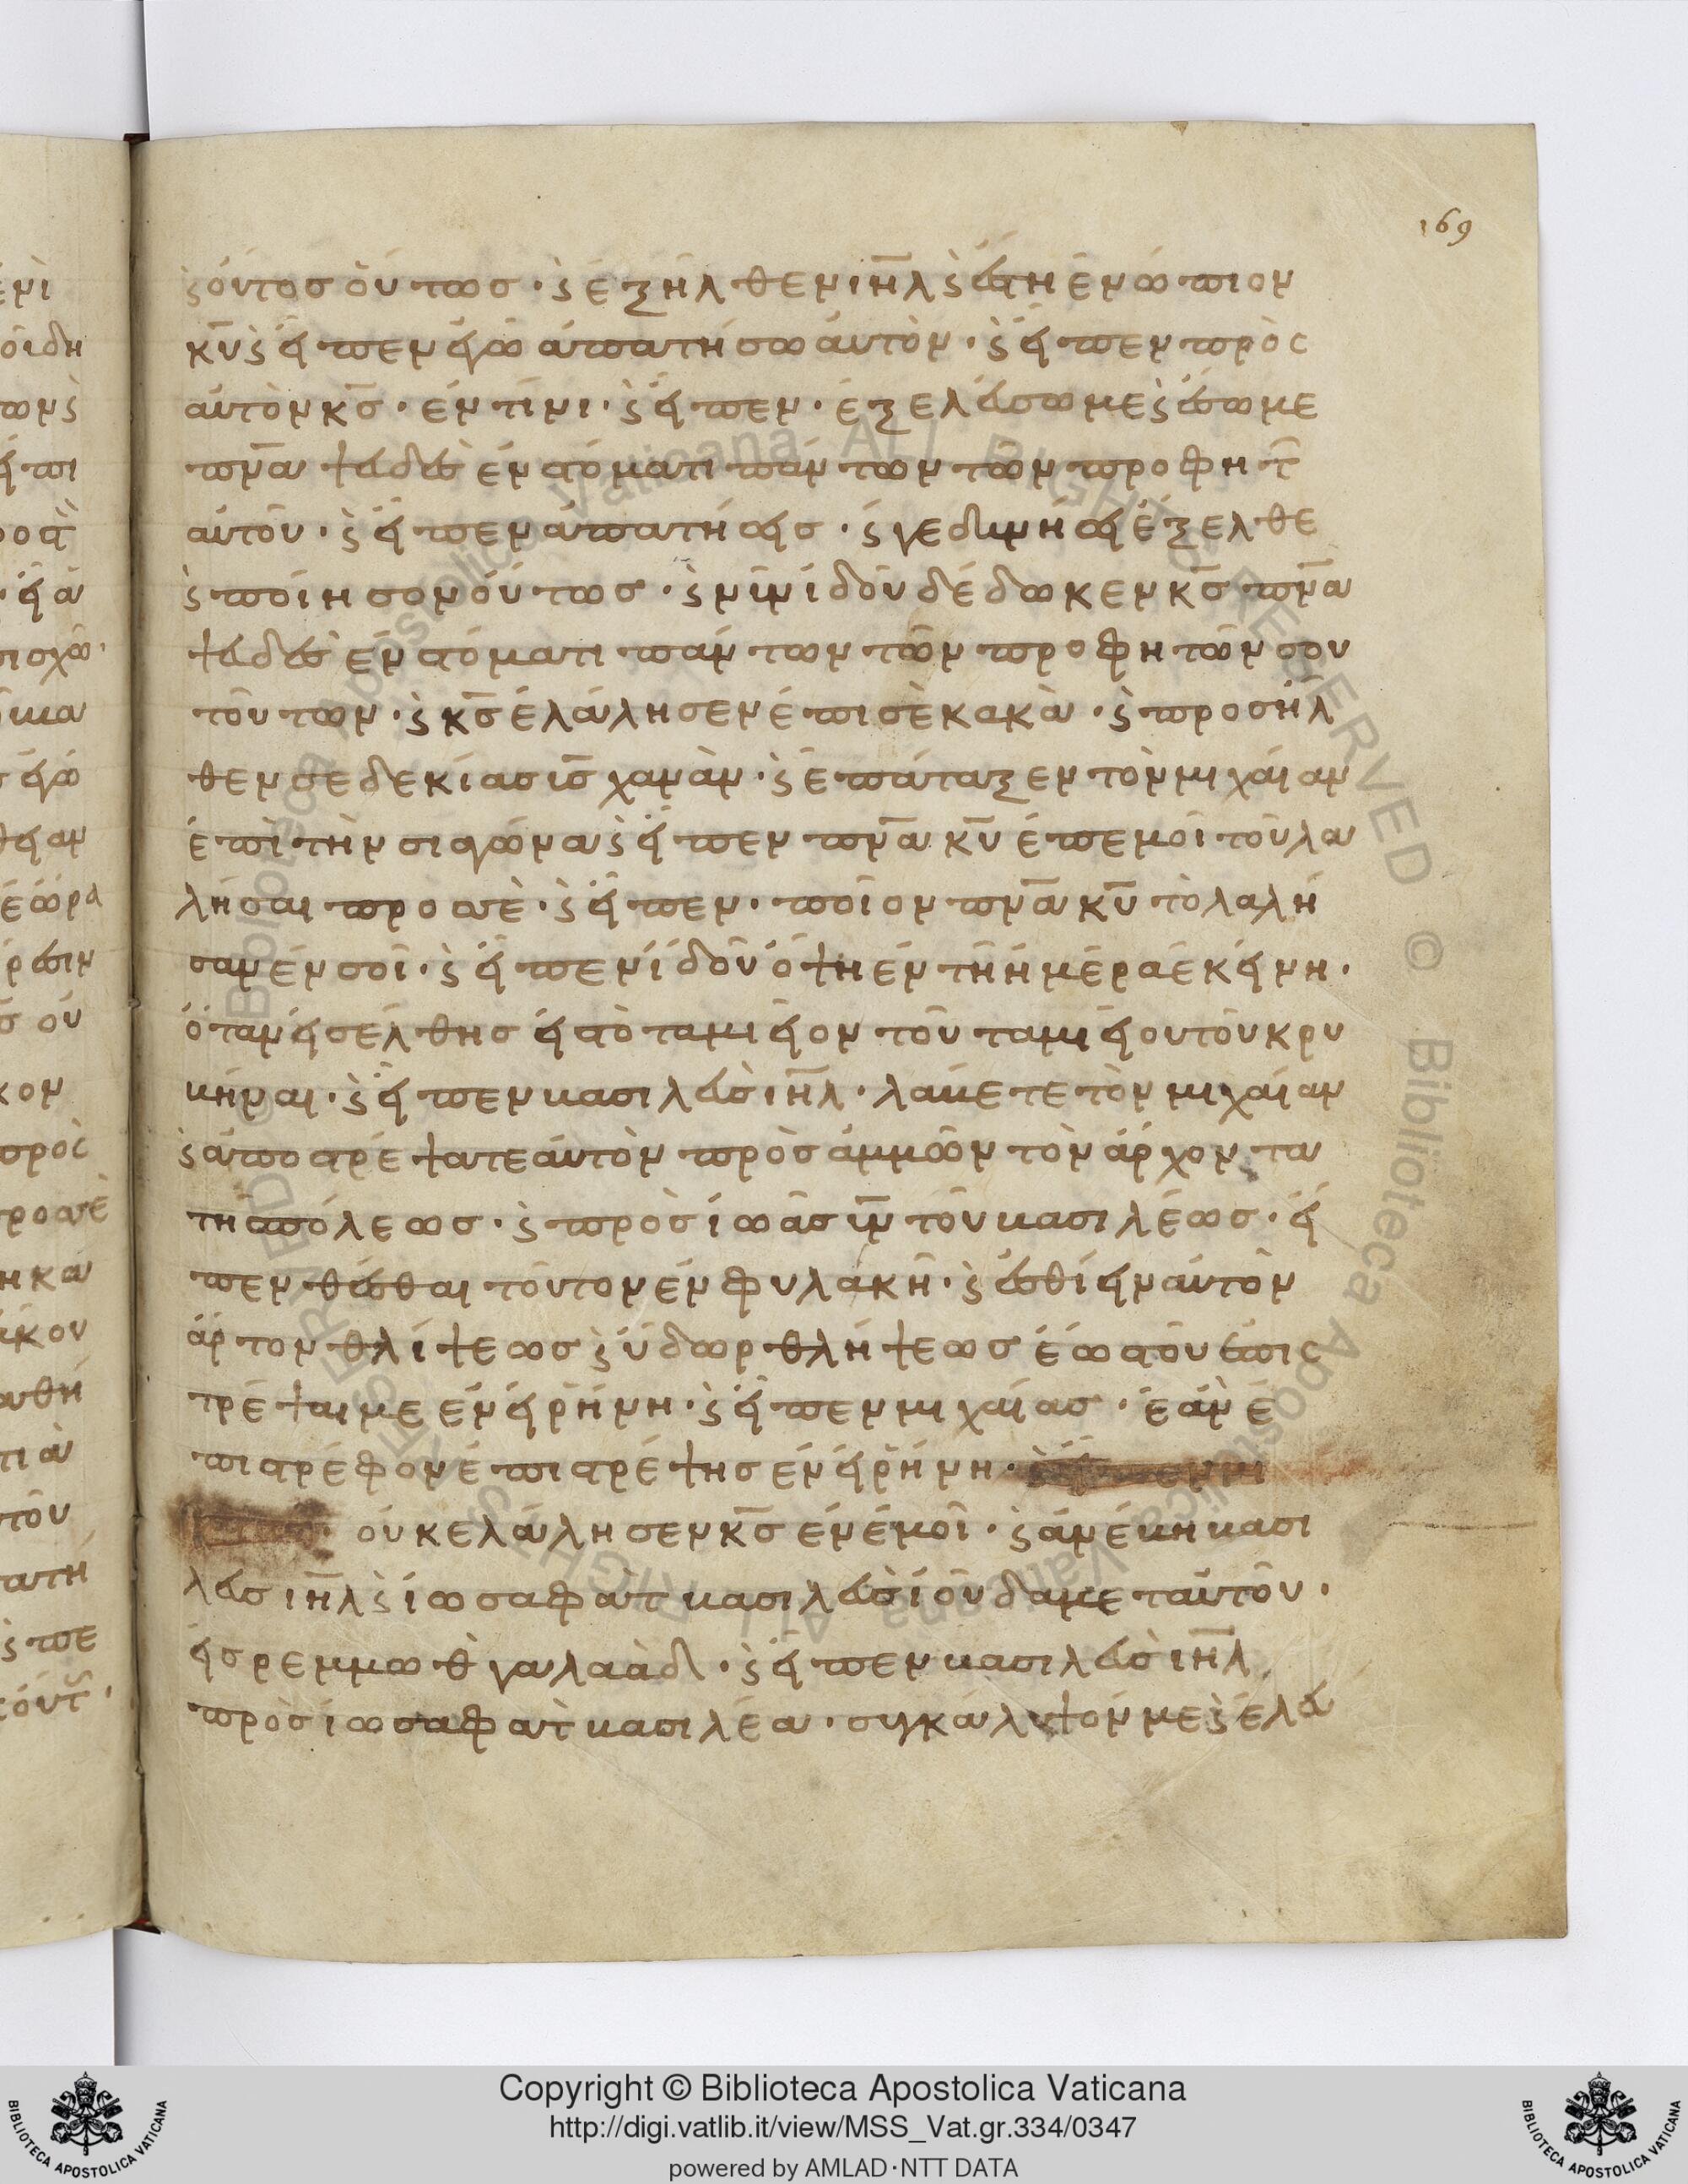 169
ϛ οὕτος οὕτως· ϛ ἐξῆλθεν ιη̅λ ϛ ἔστη ἐνώπιον
κυ̅ ϛ εἶπεν ἐγὼ ἀπατήσω αὐτὸν· ϛ εἶπεν πρὸς
αὐτὸν κ̅ς· ἐν τίνι· ϛ εἶπεν· ἐξελεύσωμε ϛ ἔσωμε
πν̅α ψευδὲς ἐν στόματι πάντων τῶν προφητ͂
αὐτοῦ· ϛ εἶπεν ἀπατήσεις· ϛ γε δυνήσει ἔξελθε
ϛ ποίησον οὕτως· ϛ νῦν ἰδοῦ δέδωκεν κ̅ς πν̅α
ψευδὲς ἐν στόματι πάντων τῶν προφητῶν σου
τούτων· ϛ κ̅ς ἐλάλησεν ἐπισὲ κακὰ· ϛ προσῆλ
θεν σεδεκίας ι̅ς χανὰν· ϛ ἐπάταξεν τὸν μιχαίαν
ἐπὶ τὴν σιαγώνα ϛ εἶπεν πν̅α κυ̅ ἐπεμοὶ τοῦ λα
λῆσαι προσσὲ· ϛ εἶπεν· ποῖον πν̅α κυ̅ τὸ λαλῆ
σαν ἐν σοὶ· ϛ εἶπεν ἰδοῦ ὄψη ἐν τῆ ἡμέρα ἐκείνη·
ὅταν εἰσέλθης εἰστὸ ταμιεῖον τοῦ ταμιείου τοῦ κρυ
βῆναι· ϛ εἶπεν βασιλεὺς ιη̅λ· λάβετε τὸν μιχαίαν
ϛ ἀποστρέψατε αὐτὸν πρὸς ἀμμῶν τὸν ἄρχοντα
τῆσπόλεως· ϛ πρὸς ἰωὰς υ̅ν τοῦ βασιλέως· εἶ
πεν θέσθαι τοῦτον ἐν φυλακῆ· ϛ ἐσθίειν αὐτὸν
ἄρτον θλίψεως ϛ ὕδωρ θλήψεως ἕωστοῦ ἐπισ
τρέψαι με ἐν εἰρήνη· ϛ εἶπεν μιχαίας· ἐὰν ἐ
πιστρέφον ἐπιστρέψης ἐν εἰρήνη·
οὐκ ἐλάλησεν κ̅ς ἐν ἐμοὶ· ϛ ἀνέβη βασι
λεὺς ιη̅λ ϛ ἰωσαφὰτ βασιλεὺς ἰούδα μεταὐτοῦ·
εἰς ρεμμωθ γαλαὰδ· ϛ εἶπεν βασιλεὺς ιη̅λ
πρὸς ἰωσαφὰτ βασιλέα· συγκάλυψόν με ϛ ἐλεύ
Copyright © Biblioteca Apostolica Vaticana
http://digi.vatlib.it/view/MSS_Vat.gr.334/0347
powered by AMLAD·NTT DATA